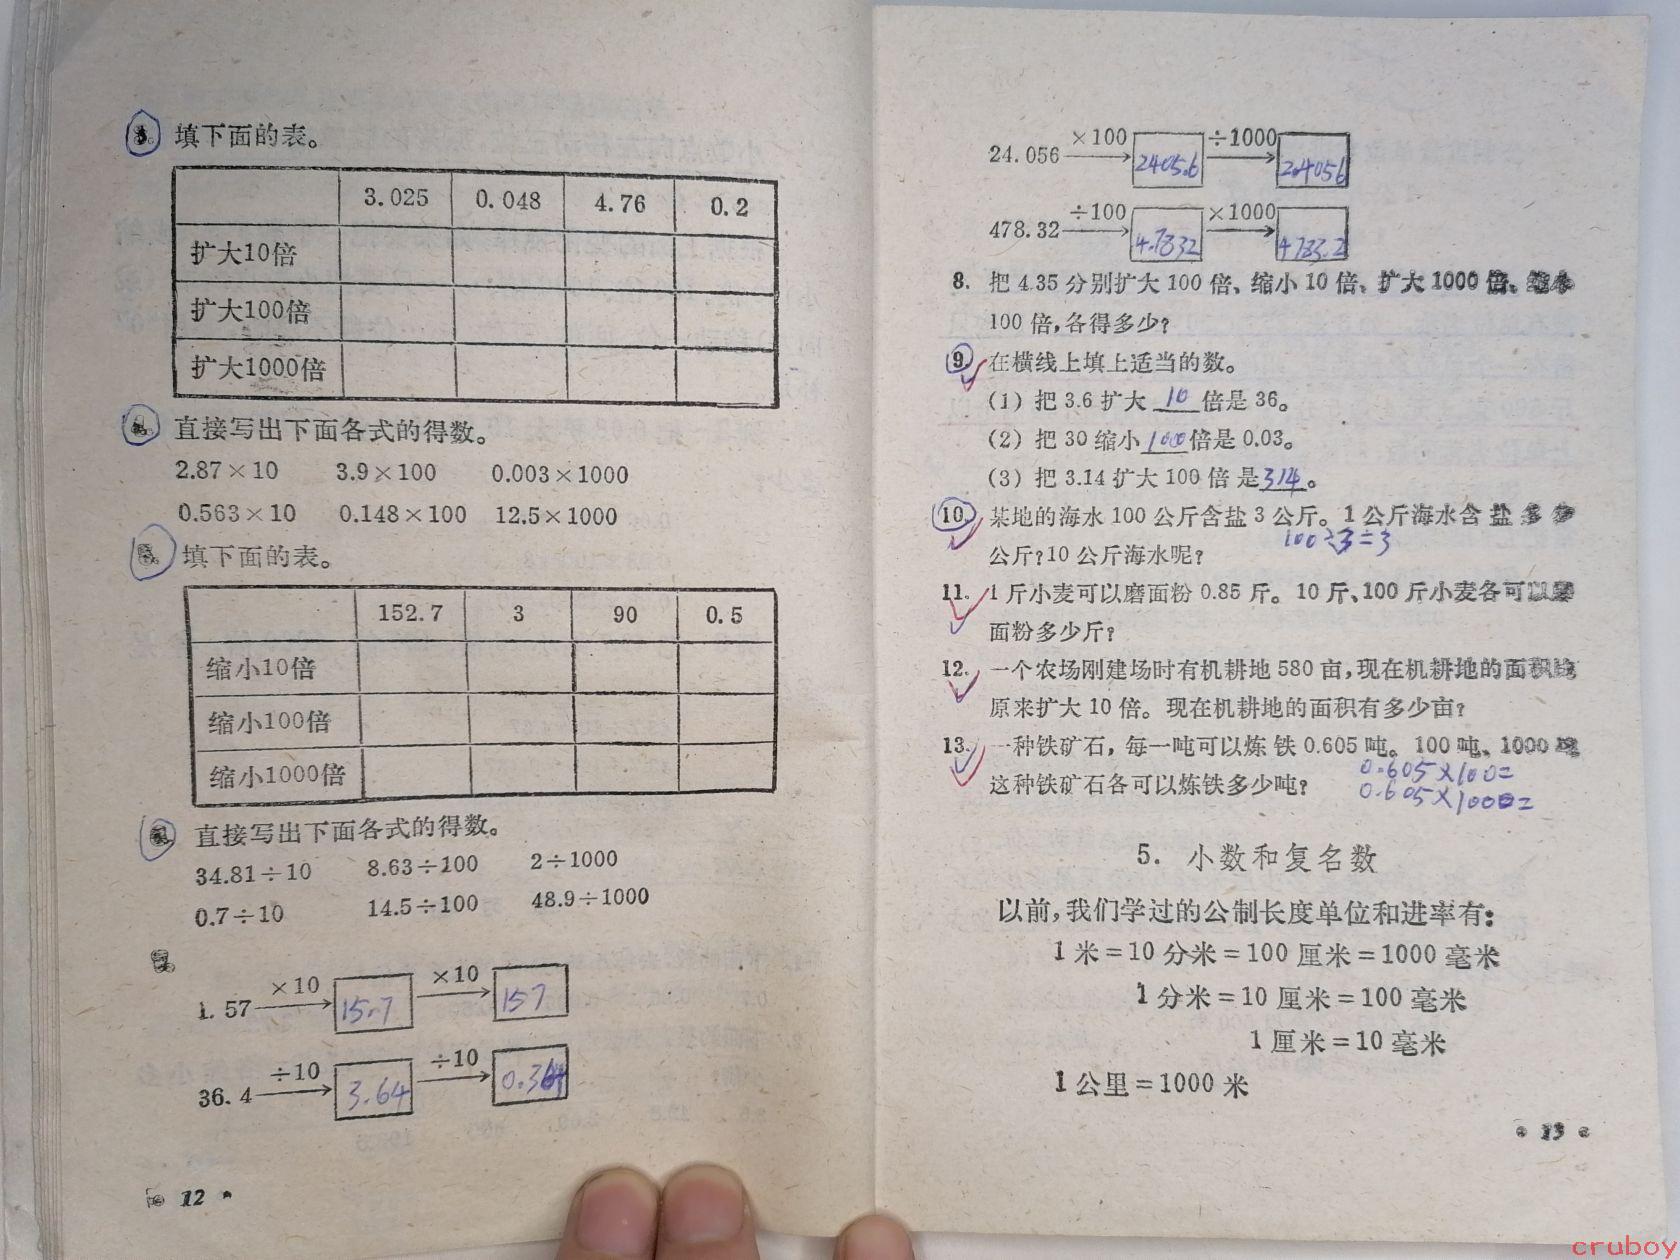 填下面的表。
3.025 0.048 4.76 0.2
扩大10倍
扩大100倍
扩大1000倍
直接写出下面各式的得数。
2.87×10 3.9×100 0.003×1000
0.563×10 0.148×100 12.5×1000
填下面的表。
152.7 3 90 0.5
缩小10倍
缩小100倍
缩小1000倍
直接写出下面各式的得数。
34.81÷10 8.63÷100 2÷1000
0.7÷10 14.5÷100 48.9÷1000
×10 ×10
1.57 15.7 157
÷10 ÷10
36.4 3.64 0.364
12
×100 ÷1000
24.056 2405.6 2.4056
÷100 ×1000
478.32 4.7832 4783.2
8. 把 4.35 分别扩大 100 倍、缩小 10 倍、扩大 1000 倍、缩小
100 倍,各得多少?
9. 在横线上填上适当的数。
(1) 把 3.6 扩大 10 倍是 36。
(2) 把 30 缩小 1000 倍是 0.03。
(3) 把 3.14 扩大 100 倍 是 314。
10. 某地的海水 100 公斤含盐 3 公斤。1 公斤海水含 盐 多 少
100÷3=3
公斤?10 公斤海水呢?
11. 1 斤小麦可以磨面粉 0.85 斤。10 斤、100 斤小麦各可以磨
面粉多少斤?
12. 一个农场刚建场时有机耕地 580 亩,现在机耕地的面积比
原来扩大 10 倍。现在机耕地的面积有多少亩?
13. 一种铁矿石,每一吨可以炼 铁 0.605 吨。100 吨、1000 吨
0.605×100=
这种铁矿石各可以炼铁多少吨?
0.605×1000=
5. 小数和复名数
以前,我们学过的公制长度单位和进率有:
1 米=10 分米=100 厘米=1000 毫米
1 分米=10 厘米=100 毫米
1 厘米=10 毫米
1 公里=1000 米
13
cruboy